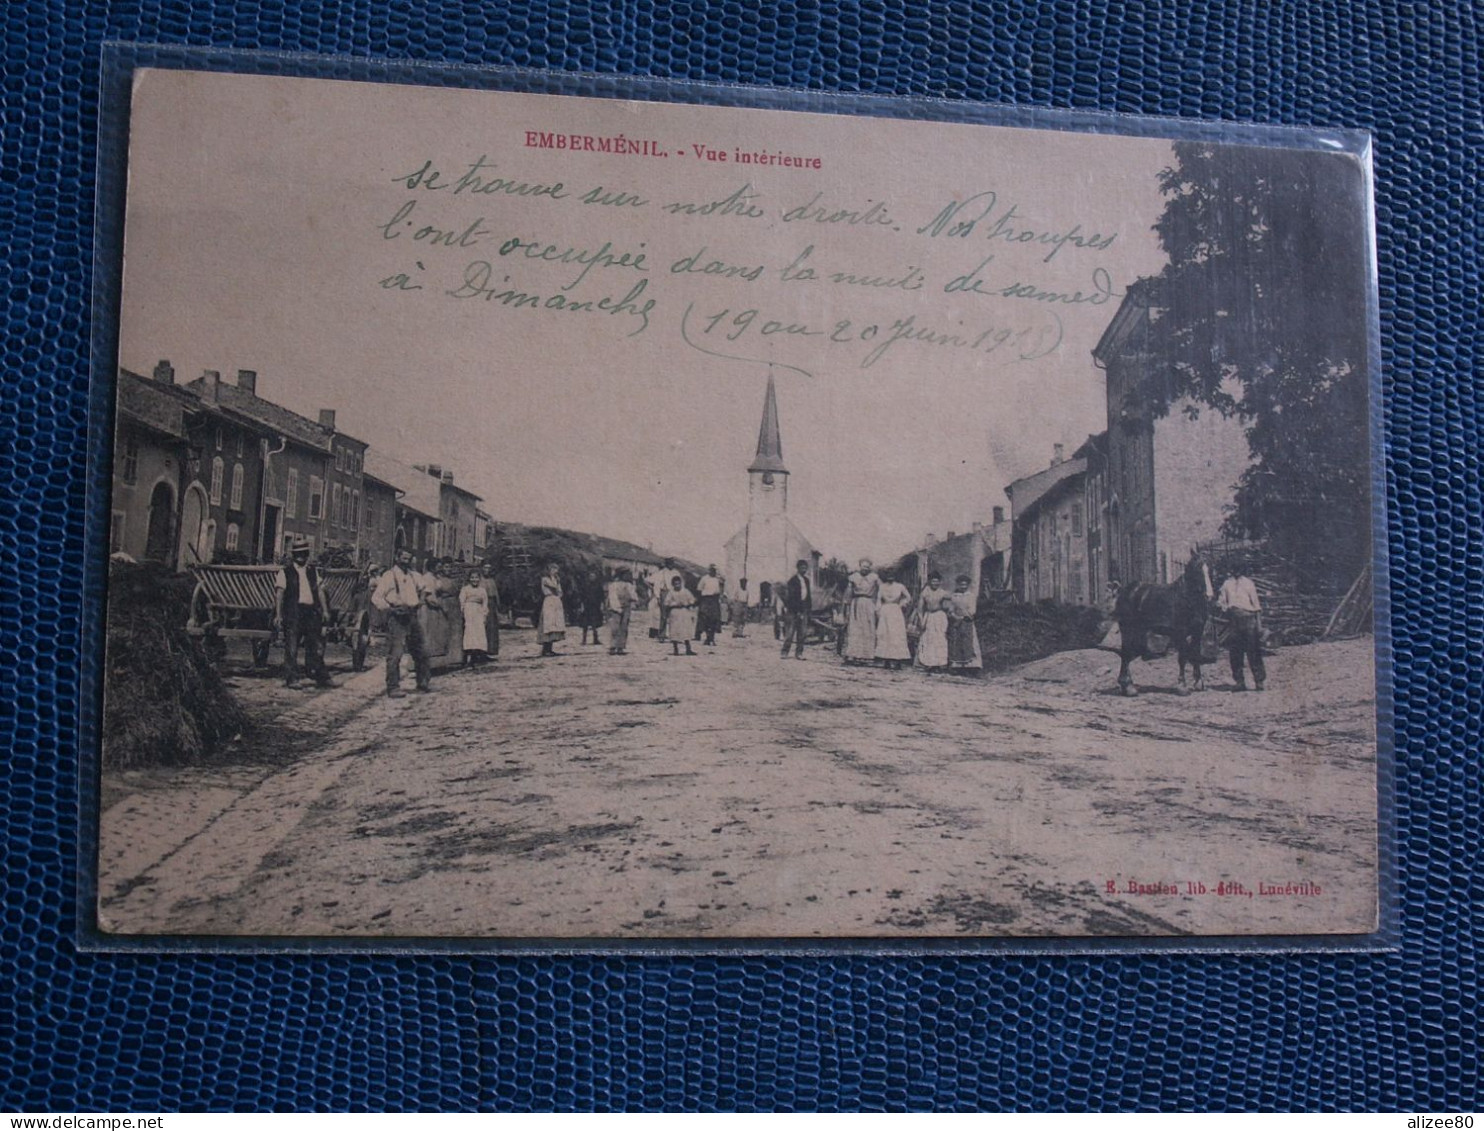 EMBERMÉNIL. - Vue intérieure
se trouve sur notre droite. Nos troupes
l'ont occupée dans la nuit de samedi
à Dimanche (19 au 20 Juin 1915)
E. Bastien, lib.-édit., Lunéville
alizee80